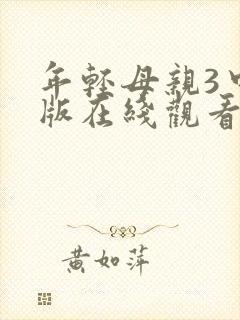 年轻母親3中
版在綫觀看
黄如萍